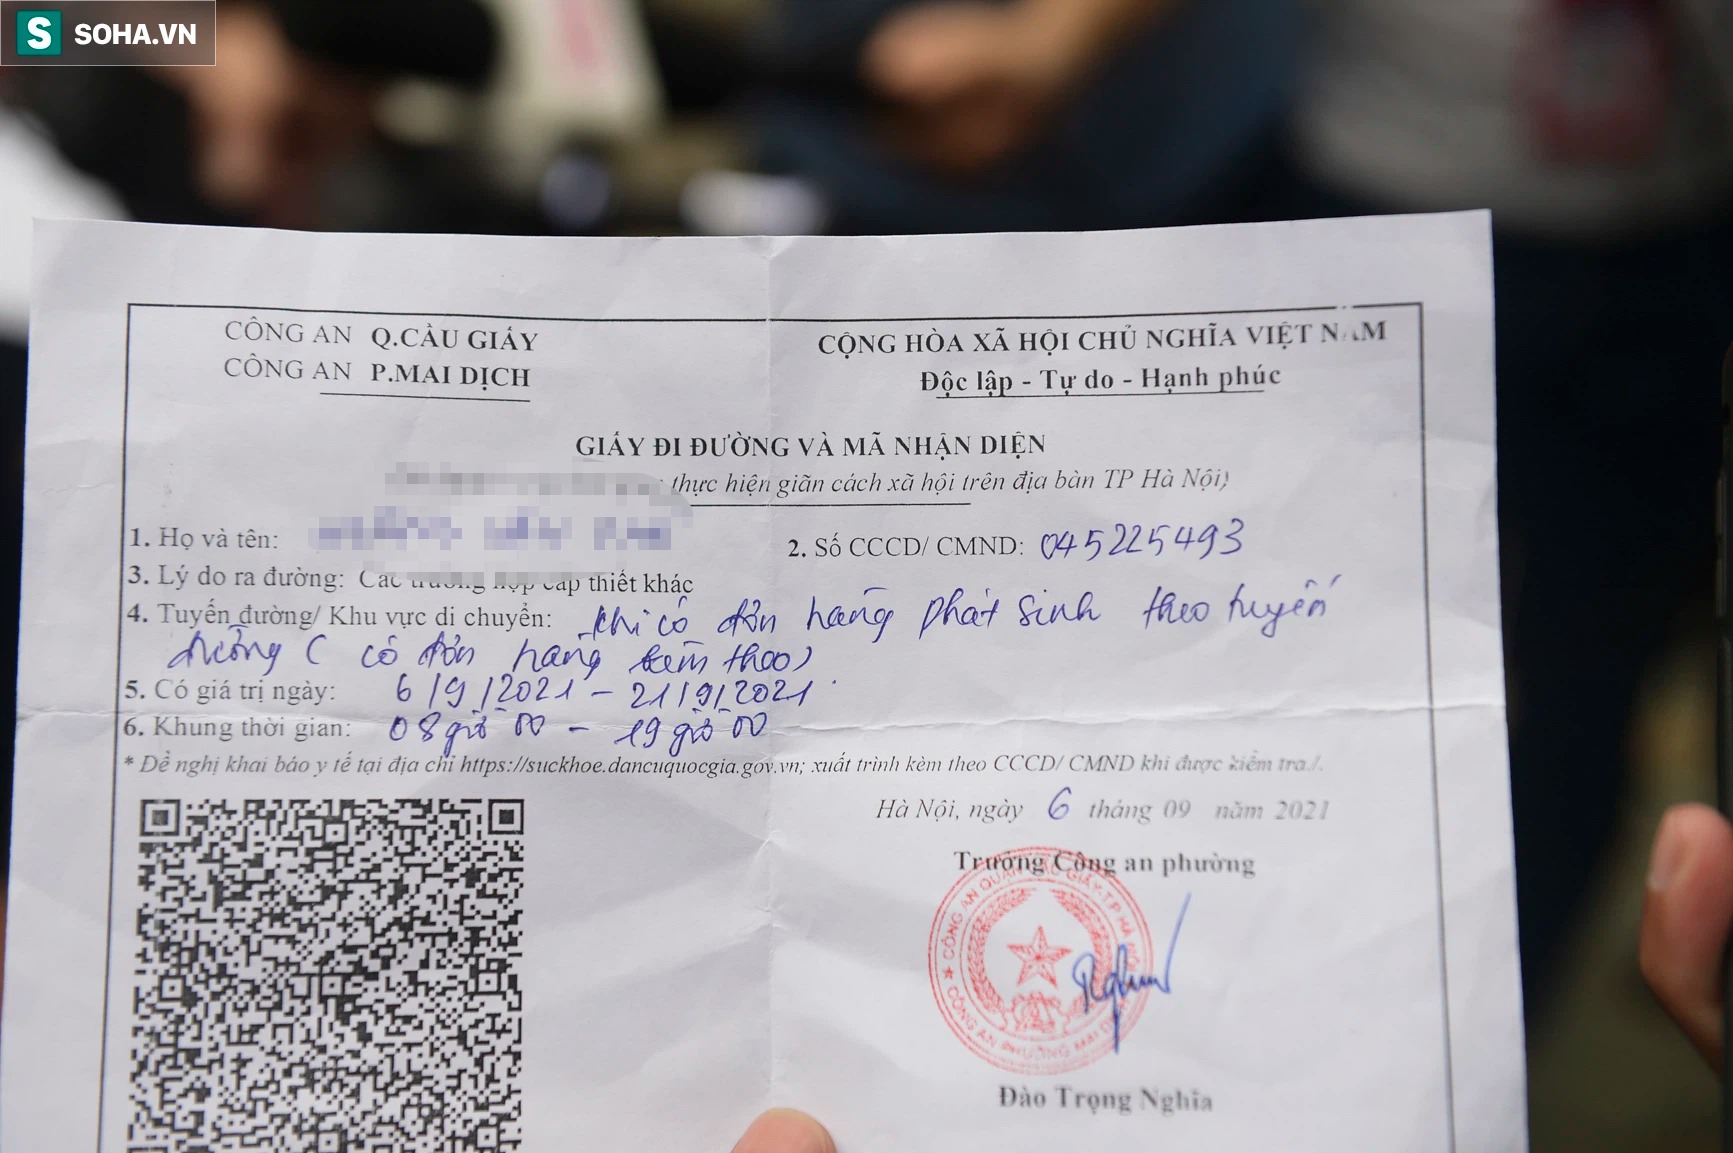 SOHA.VN
CÔNG AN Q.CẦU GIẤY
CÔNG AN P.MAI DỊCH
CỘNG HÒA XÃ HỘI CHỦ NGHĨA VIỆT NAM
Độc lập - Tự do - Hạnh phúc
GIẤY ĐI ĐƯỜNG VÀ MÃ NHẬN DIỆN
thực hiện giãn cách xã hội trên địa bàn TP Hà Nội)
1. Họ và tên:
2. Số CCCD/ CMND: 045225493
3. Lý do ra đường: Các trường hợp cấp thiết khác
4. Tuyến đường/ Khu vực di chuyển: khi có đơn hàng phát sinh theo tuyến
đường ( có đơn hàng kèm theo)
5. Có giá trị ngày: 6/9/2021 - 21/9/2021
6. Khung thời gian: 08 giờ 00 - 19 giờ 00
* Đề nghị khai báo y tế tại địa chỉ https://suckhoe.dancuquocgia.gov.vn; xuất trình kèm theo CCCD/ CMND khi được kiểm tra./.
Hà Nội, ngày 6 tháng 09 năm 2021
Trưởng Công an phường
CÔNG AN QUẬN CẦU GIẤY-TP HÀ NỘI
CÔNG AN PHƯỜNG MAI DỊCH
Đào Trọng Nghĩa